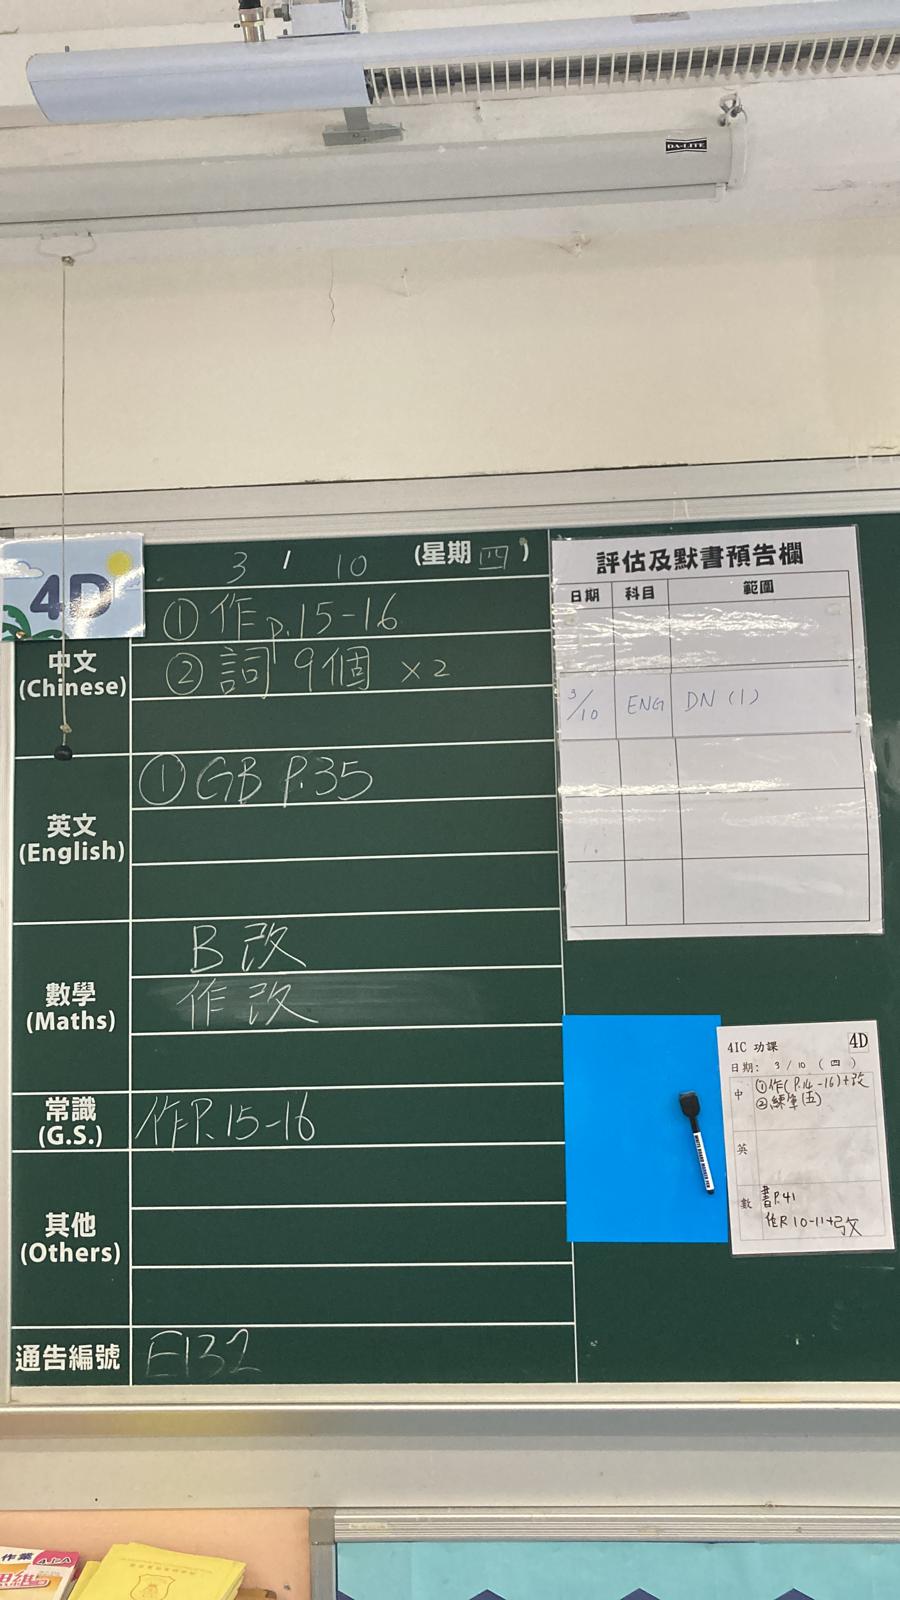 DA-LITE
4D
3 / 10 (星期四)
中文
(Chinese)
①作p.15-16
②詞 9個 ×2
英文
(English)
①GB P.35
數學
(Maths)
B 改
作 改
常識
(G.S.)
作P.15-16
其他
(Others)
通告編號
E132
評估及默書預告欄
日期 科目 範圍
3/10 ENG DN (1)
4IC 功課 4D
日期: 3 / 10 (四)
中 ①作(P.14-16)+改
②練筆(五)
英
數 書P.41
作P.10-11+改
作業